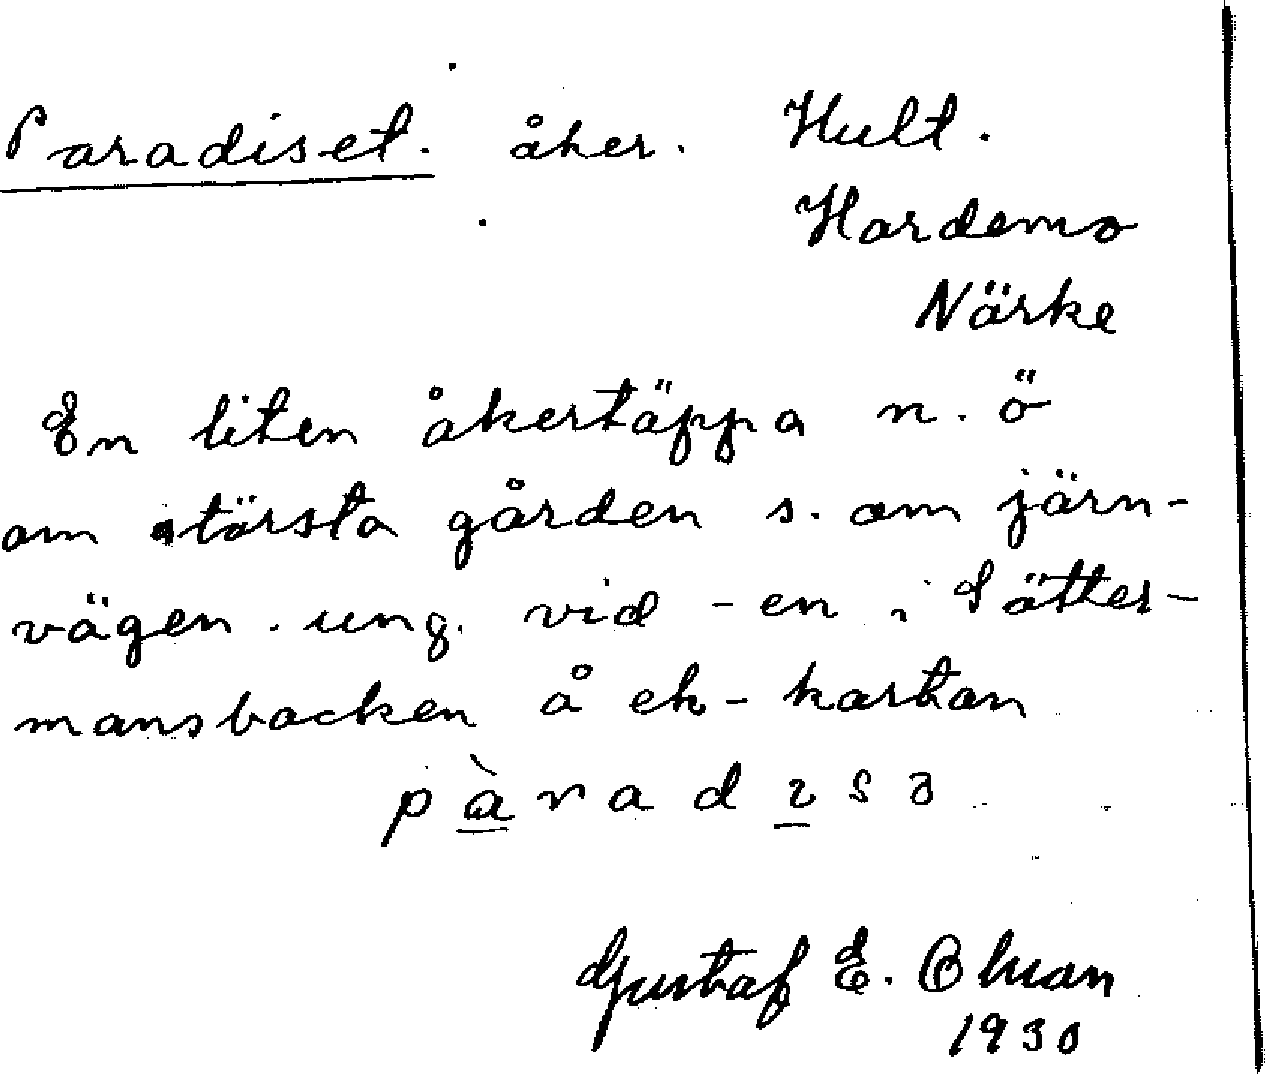 Paradiset. åker. Hult.
Hardemo
Närke
En liten åkertäppa n. ö
om största gården s. om järn-
vägen. ung. vid -en i Sätter-
mansbacken å ek-kartan
pàradɩsə
Gustaf E. Ohman
1930